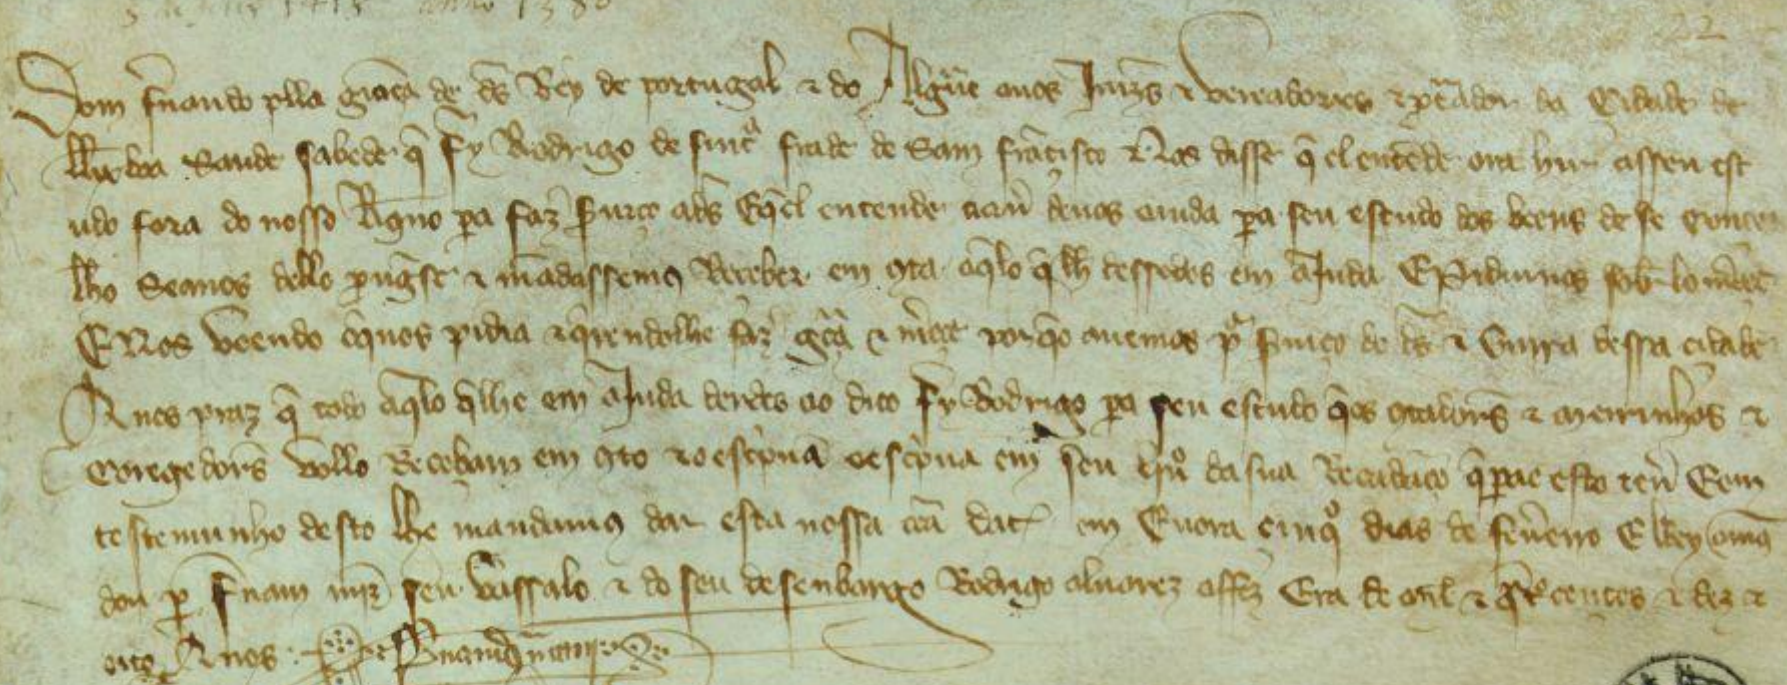 anno 1380
22
Dom fr̃nando pella graça de ds̃ Rey de portugal e do Algũe auos Juizes e vereadores e p̃cador da Cidade de
lixboa Saude sabede q̃ frey Rodrigo de sintª frade de Sam frãcisco Nos disse q̃ el entende ora hir a sseu est
udo fora do nosso Regño pa fazer seruiço a ds̃ E q̃ el entende auer deuos aiuda pa seu estudo dos beens desse Conce
lho Seanos dello prouguesse e mãdassemos Receber em cõta aq̃lo q̃ lh dessedes em aJuda E Pidiunos sob̃llo merçee
E Nos veendo o q̃ nos pidia e q̃rendolhe fazer graça e merçee por q̃o auemos p̃ seruiço de ds̃ e õrra dessa cidade
A nos praz q̃ todo aq̃lo q̃ lhe em aJuda derdes ao dito frey Rodrigo pa seu estudo q̃ os cõtadores e meirinhos e
Coregedores vollo Recebam em cõto e o escpuã o escpua em seu liuro da sua Recadaço
testemunho desto lhe mandamos dar esta nossa cra dat em Euora cinqº dias de feuereiro ElRey o mã
dou per fernam mrz̃ seu vassalo e do seu desenbargo Rodrigo aluarez a ffez Era de mil e q̃trocentos e dez e
oito Anos